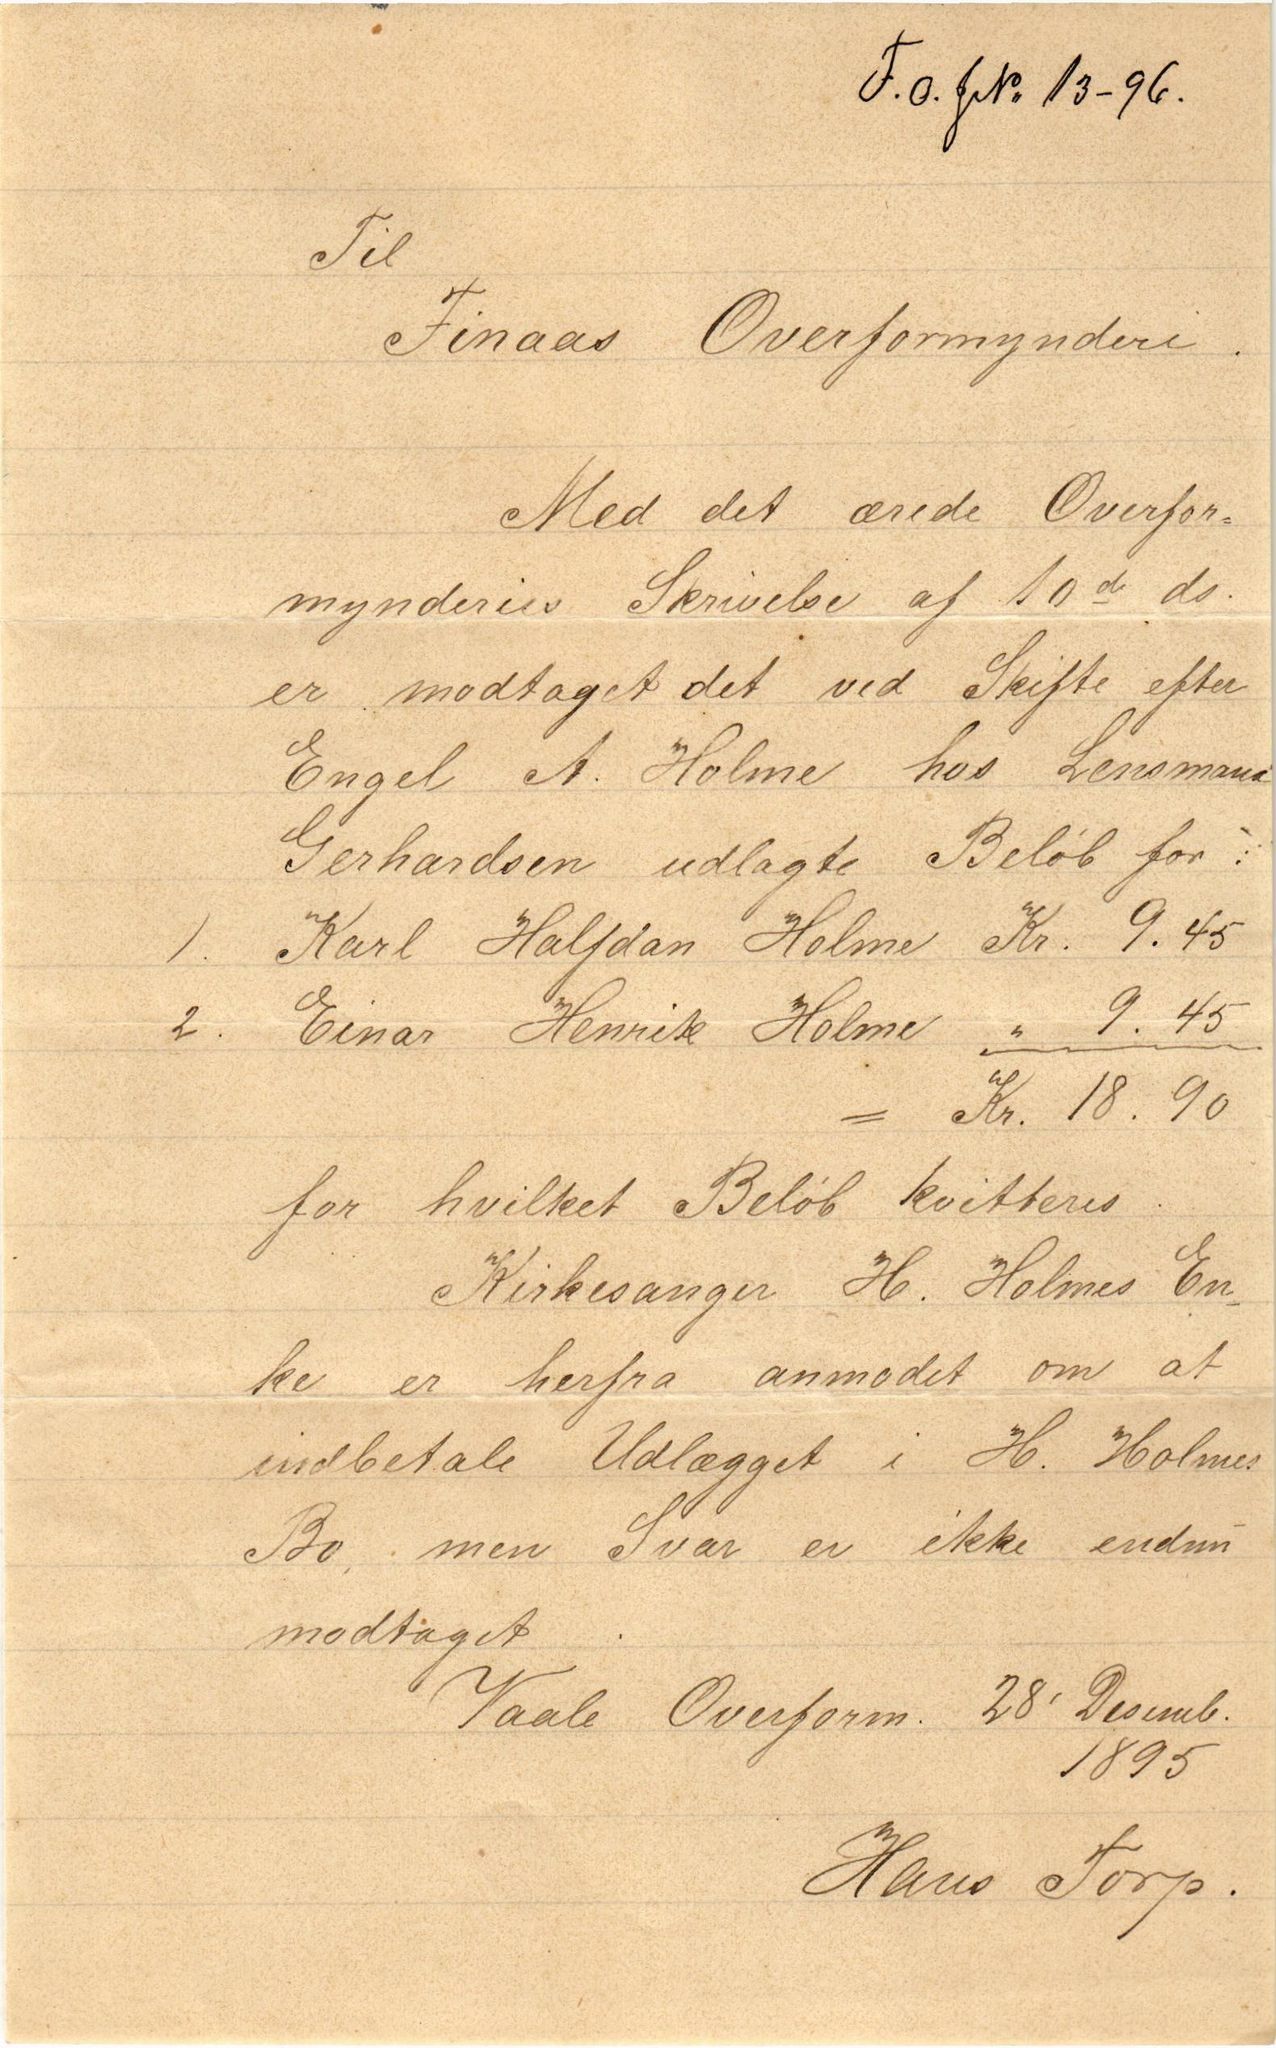 F.O.J№. 13-96.
Til
Finaas Overformynderi.
Med det ærede Overfor-
mynderies Skrivelse af 10de ds.
er modtaget det ved Skifte efter
Engel A. Holme hos Lensmand
Gerhardsen udlagte Beløb for:
1. Karl Halfdan Holme Kr. 9.45
2. Einar Henrik Holme " 9.45
= Kr. 18.90
for hvilket Beløb kvitteres.
Kirkesanger H. Holmes En-
ke er herfra anmodet om at
indbetale Udlægget i H. Holmes
Bo, men Svar er ikke endnu
modtaget.
Vaale Overform. 28' Desemb.
1895
Hans Torp.